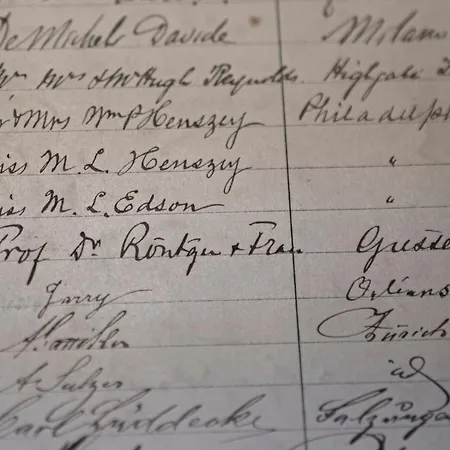 De Micheli Davide Milano
Mrs & Mr Hugh Reynolds Highgate
& Mrs Wm P Henszey Philadelph
iss M. L. Henszey "
iss M. L. Edson "
Prof Dr Röntgen & Frau Giesse
Jarry Orléans
Zürich
A. Sulzer id
Carl Lüddecke Salzunge